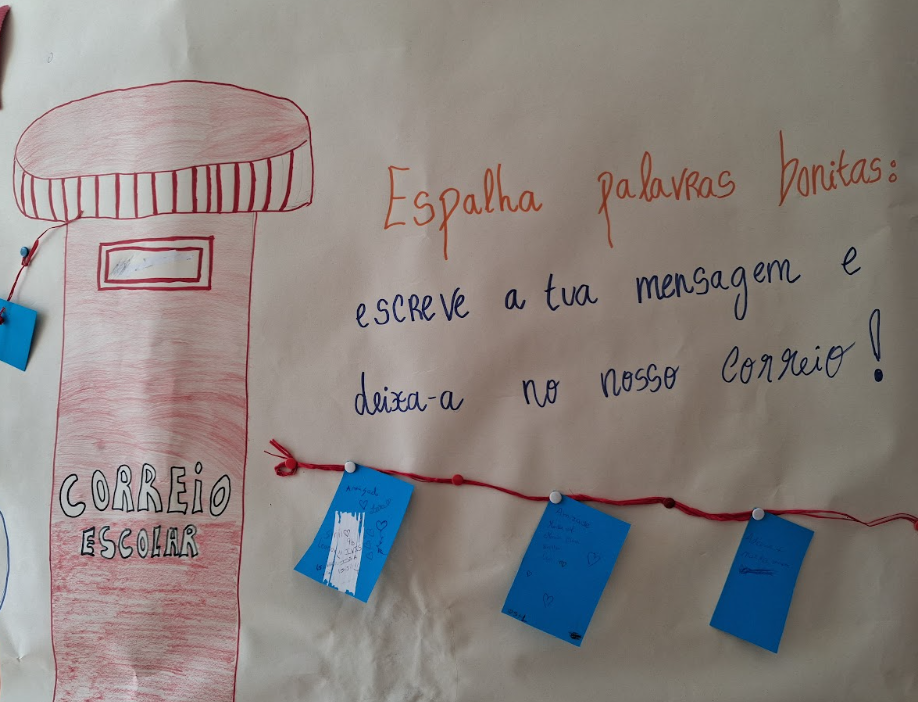 Espalha palavras bonitas:
escreve a tua mensagem e
deixa-a no nosso correio!
CORREIO
ESCOLAR